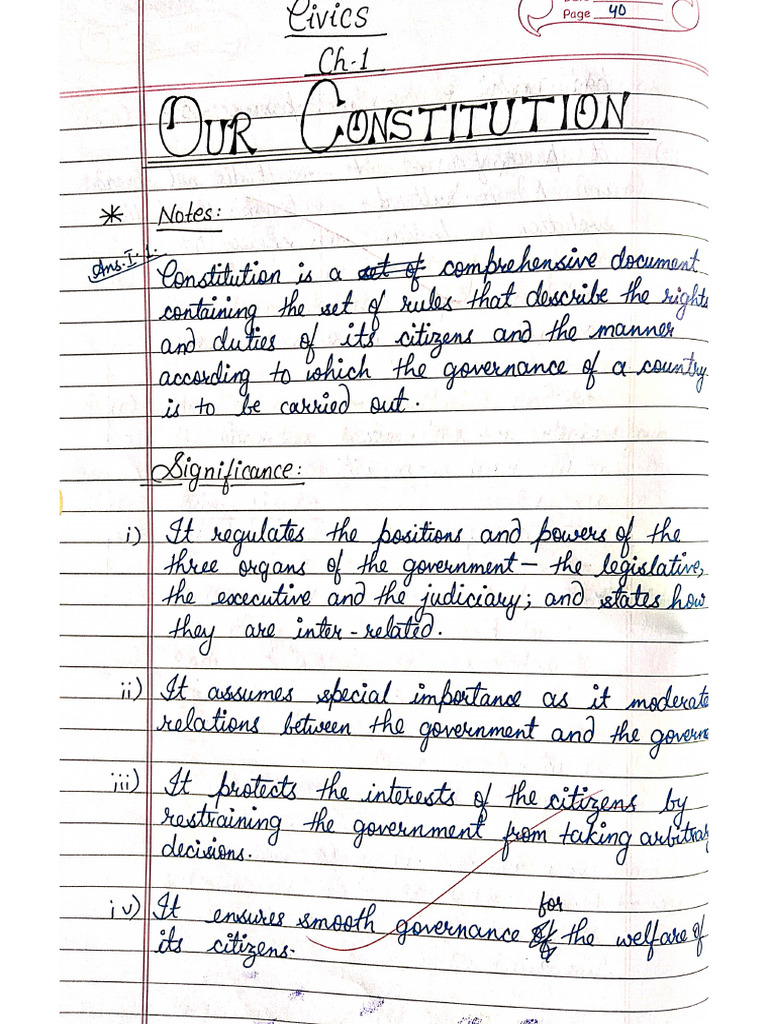 Civics
Page 40
Ch-1
OUR CONSTITUTION
* Notes:
Ans.I.1. Constitution is a set of comprehensive document
containing the set of rules that describe the rights
and duties of its citizens and the manner
according to which the governance of a country
is to be carried out.
Significance:
i) It regulates the positions and powers of the
three organs of the government - the legislative,
the executive and the judiciary; and states how
they are inter-related.
ii) It assumes special importance as it moderate
relations between the government and the govern
iii) It protects the interests of the citizens by
restraining the government from taking arbitrar
decisions.
for
iv) It ensures smooth governance the welfare of
its citizens.